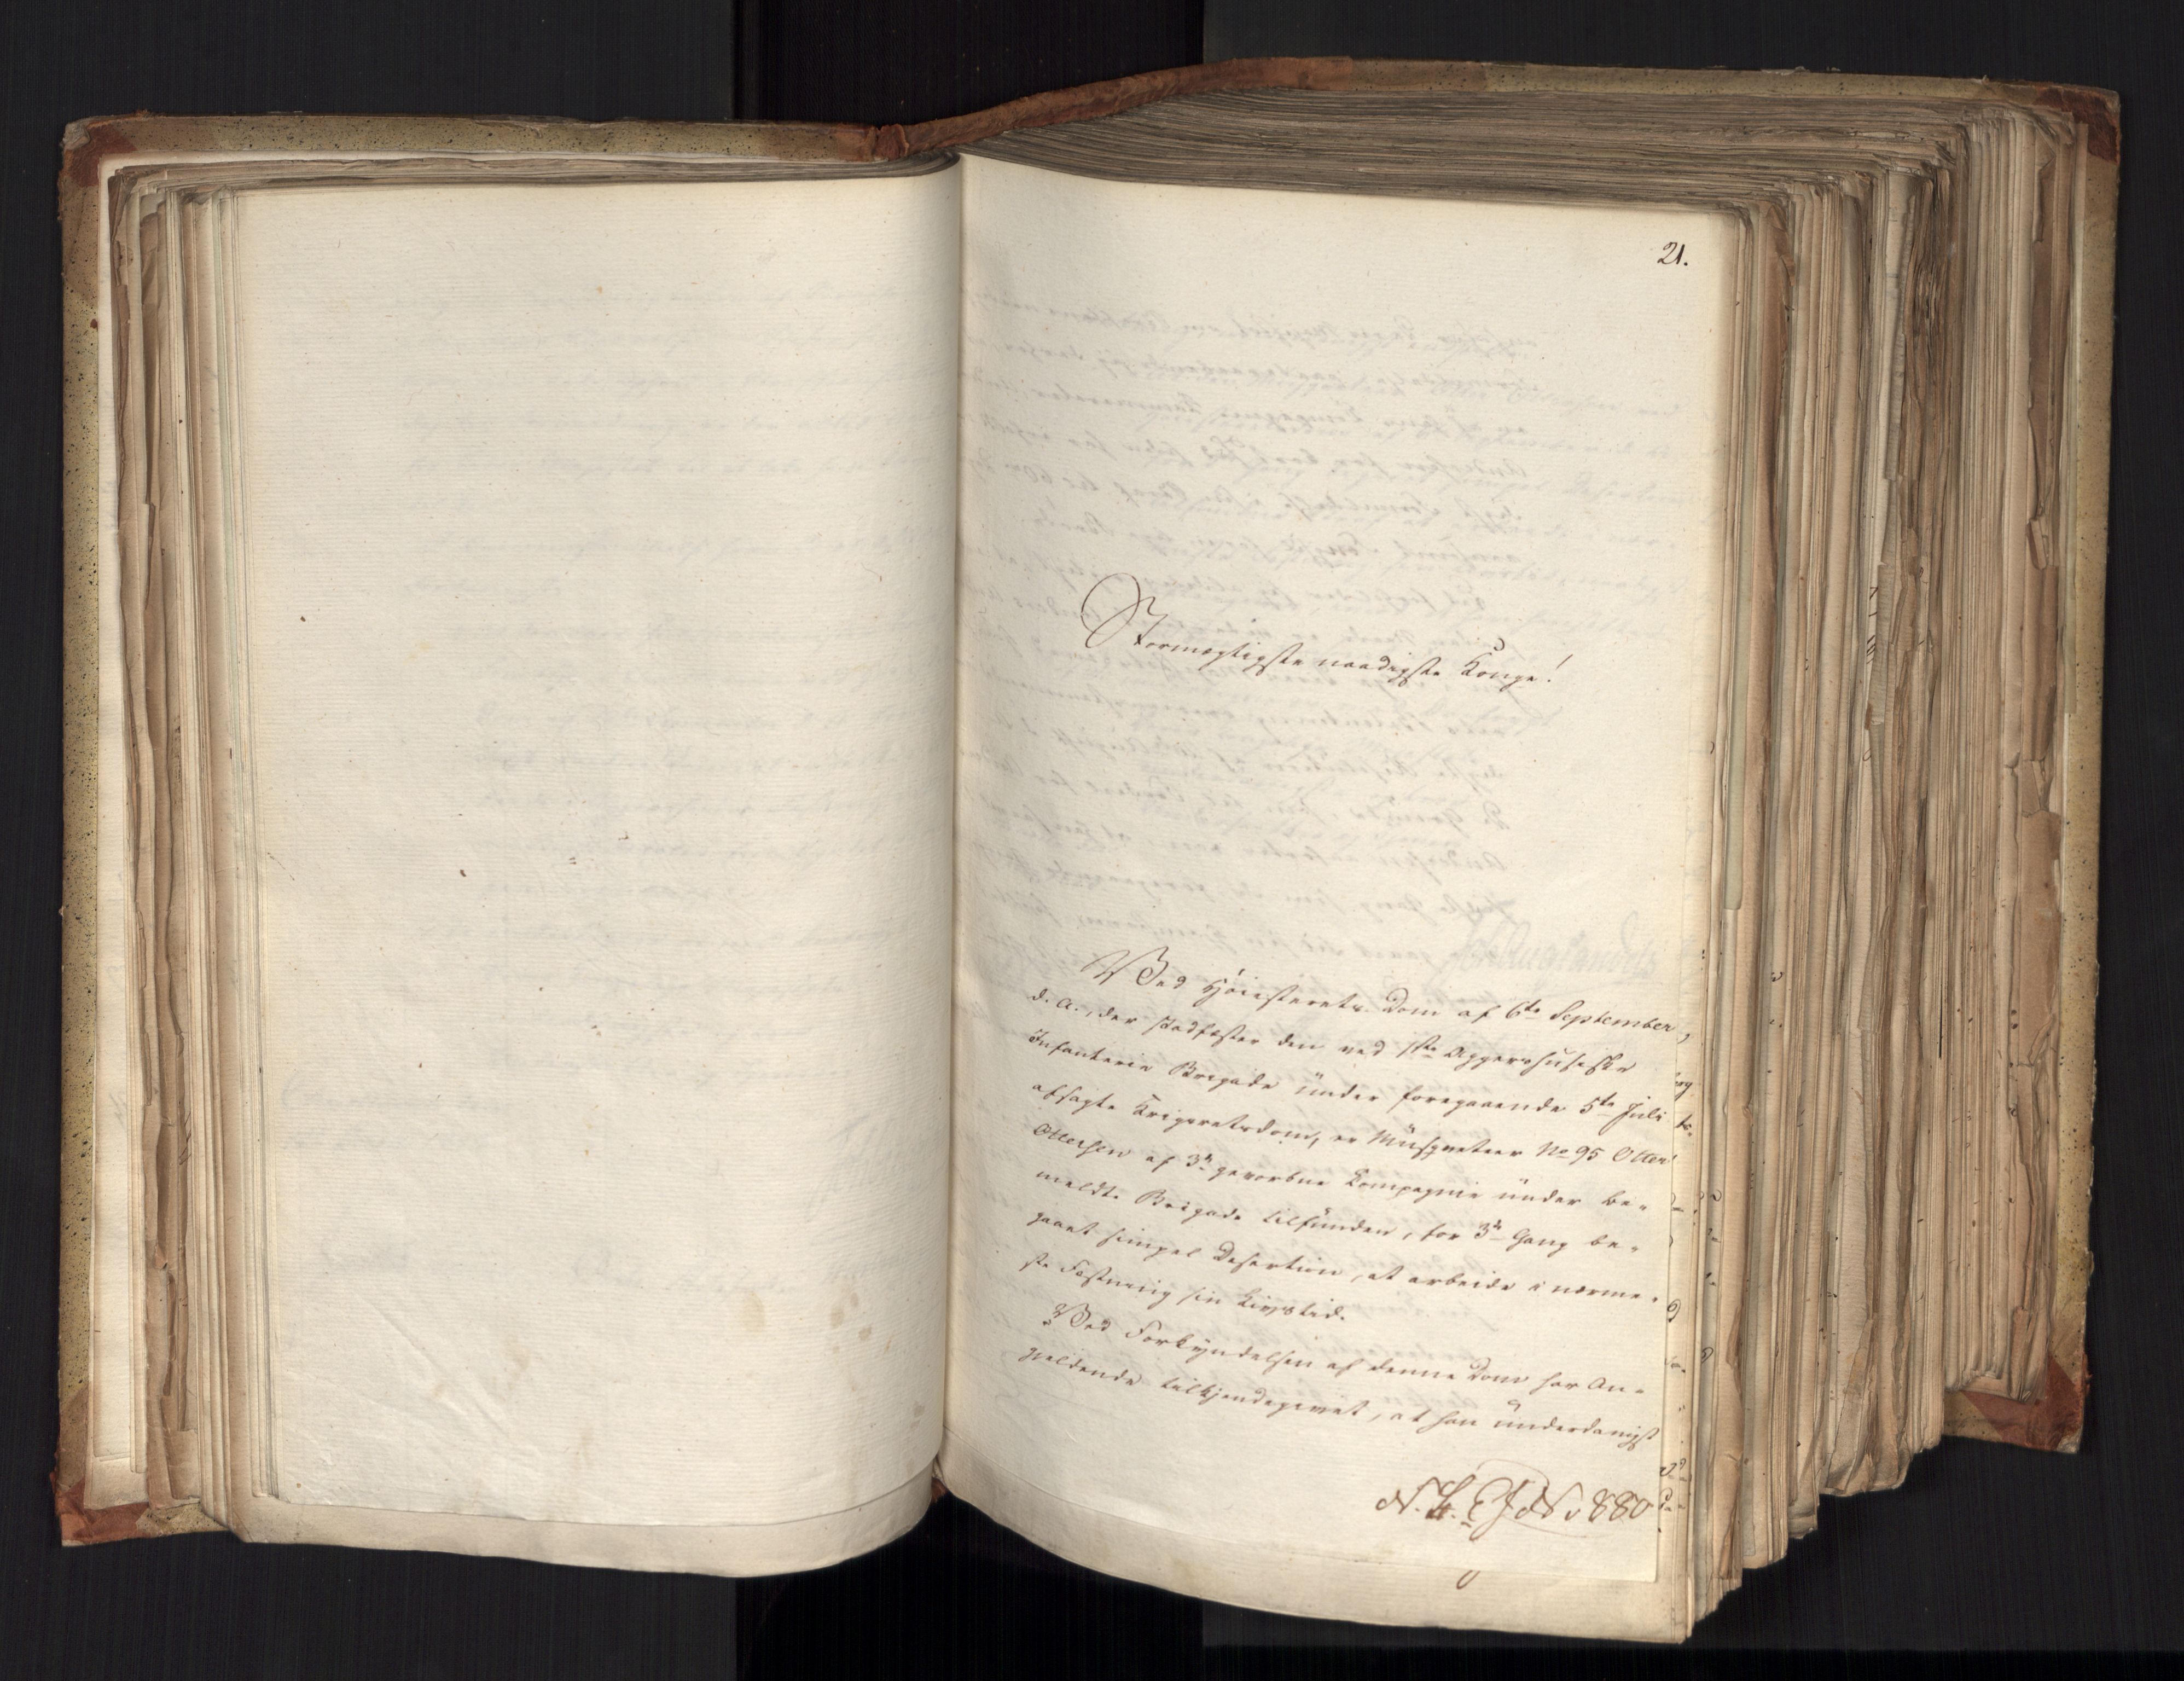 21.
Stormægtigste naadigste Konge!
Ved Høiesterets-Dom af 6te September
d. A., der stadfæster den ved 1ste Aggershusiske
Infanterie Brigade under foregaaende 5te Juli
afsagte Krigsretsdom, er Musqueteer No 95 Otter
Ottersen af 3die gevorbne Compagnie under be-
meldte Brigade tilfunden, for 3die Gang be-
gaaet simpel Desertion, at arbeide i nærme-
ste Fæstning sin Livstid.
Ved Forkyndelsen af denne Dom har An-
gjeldende tilkjendegivet, at han underdanigst
880